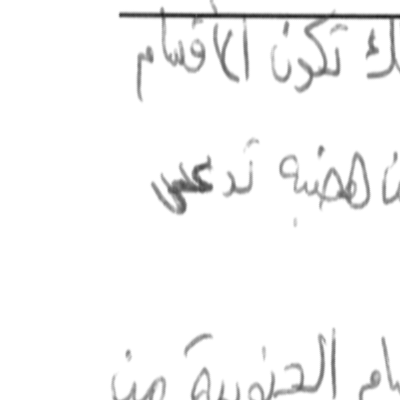 تكون الاقسام
هضبه تدعى
الجنوبية من